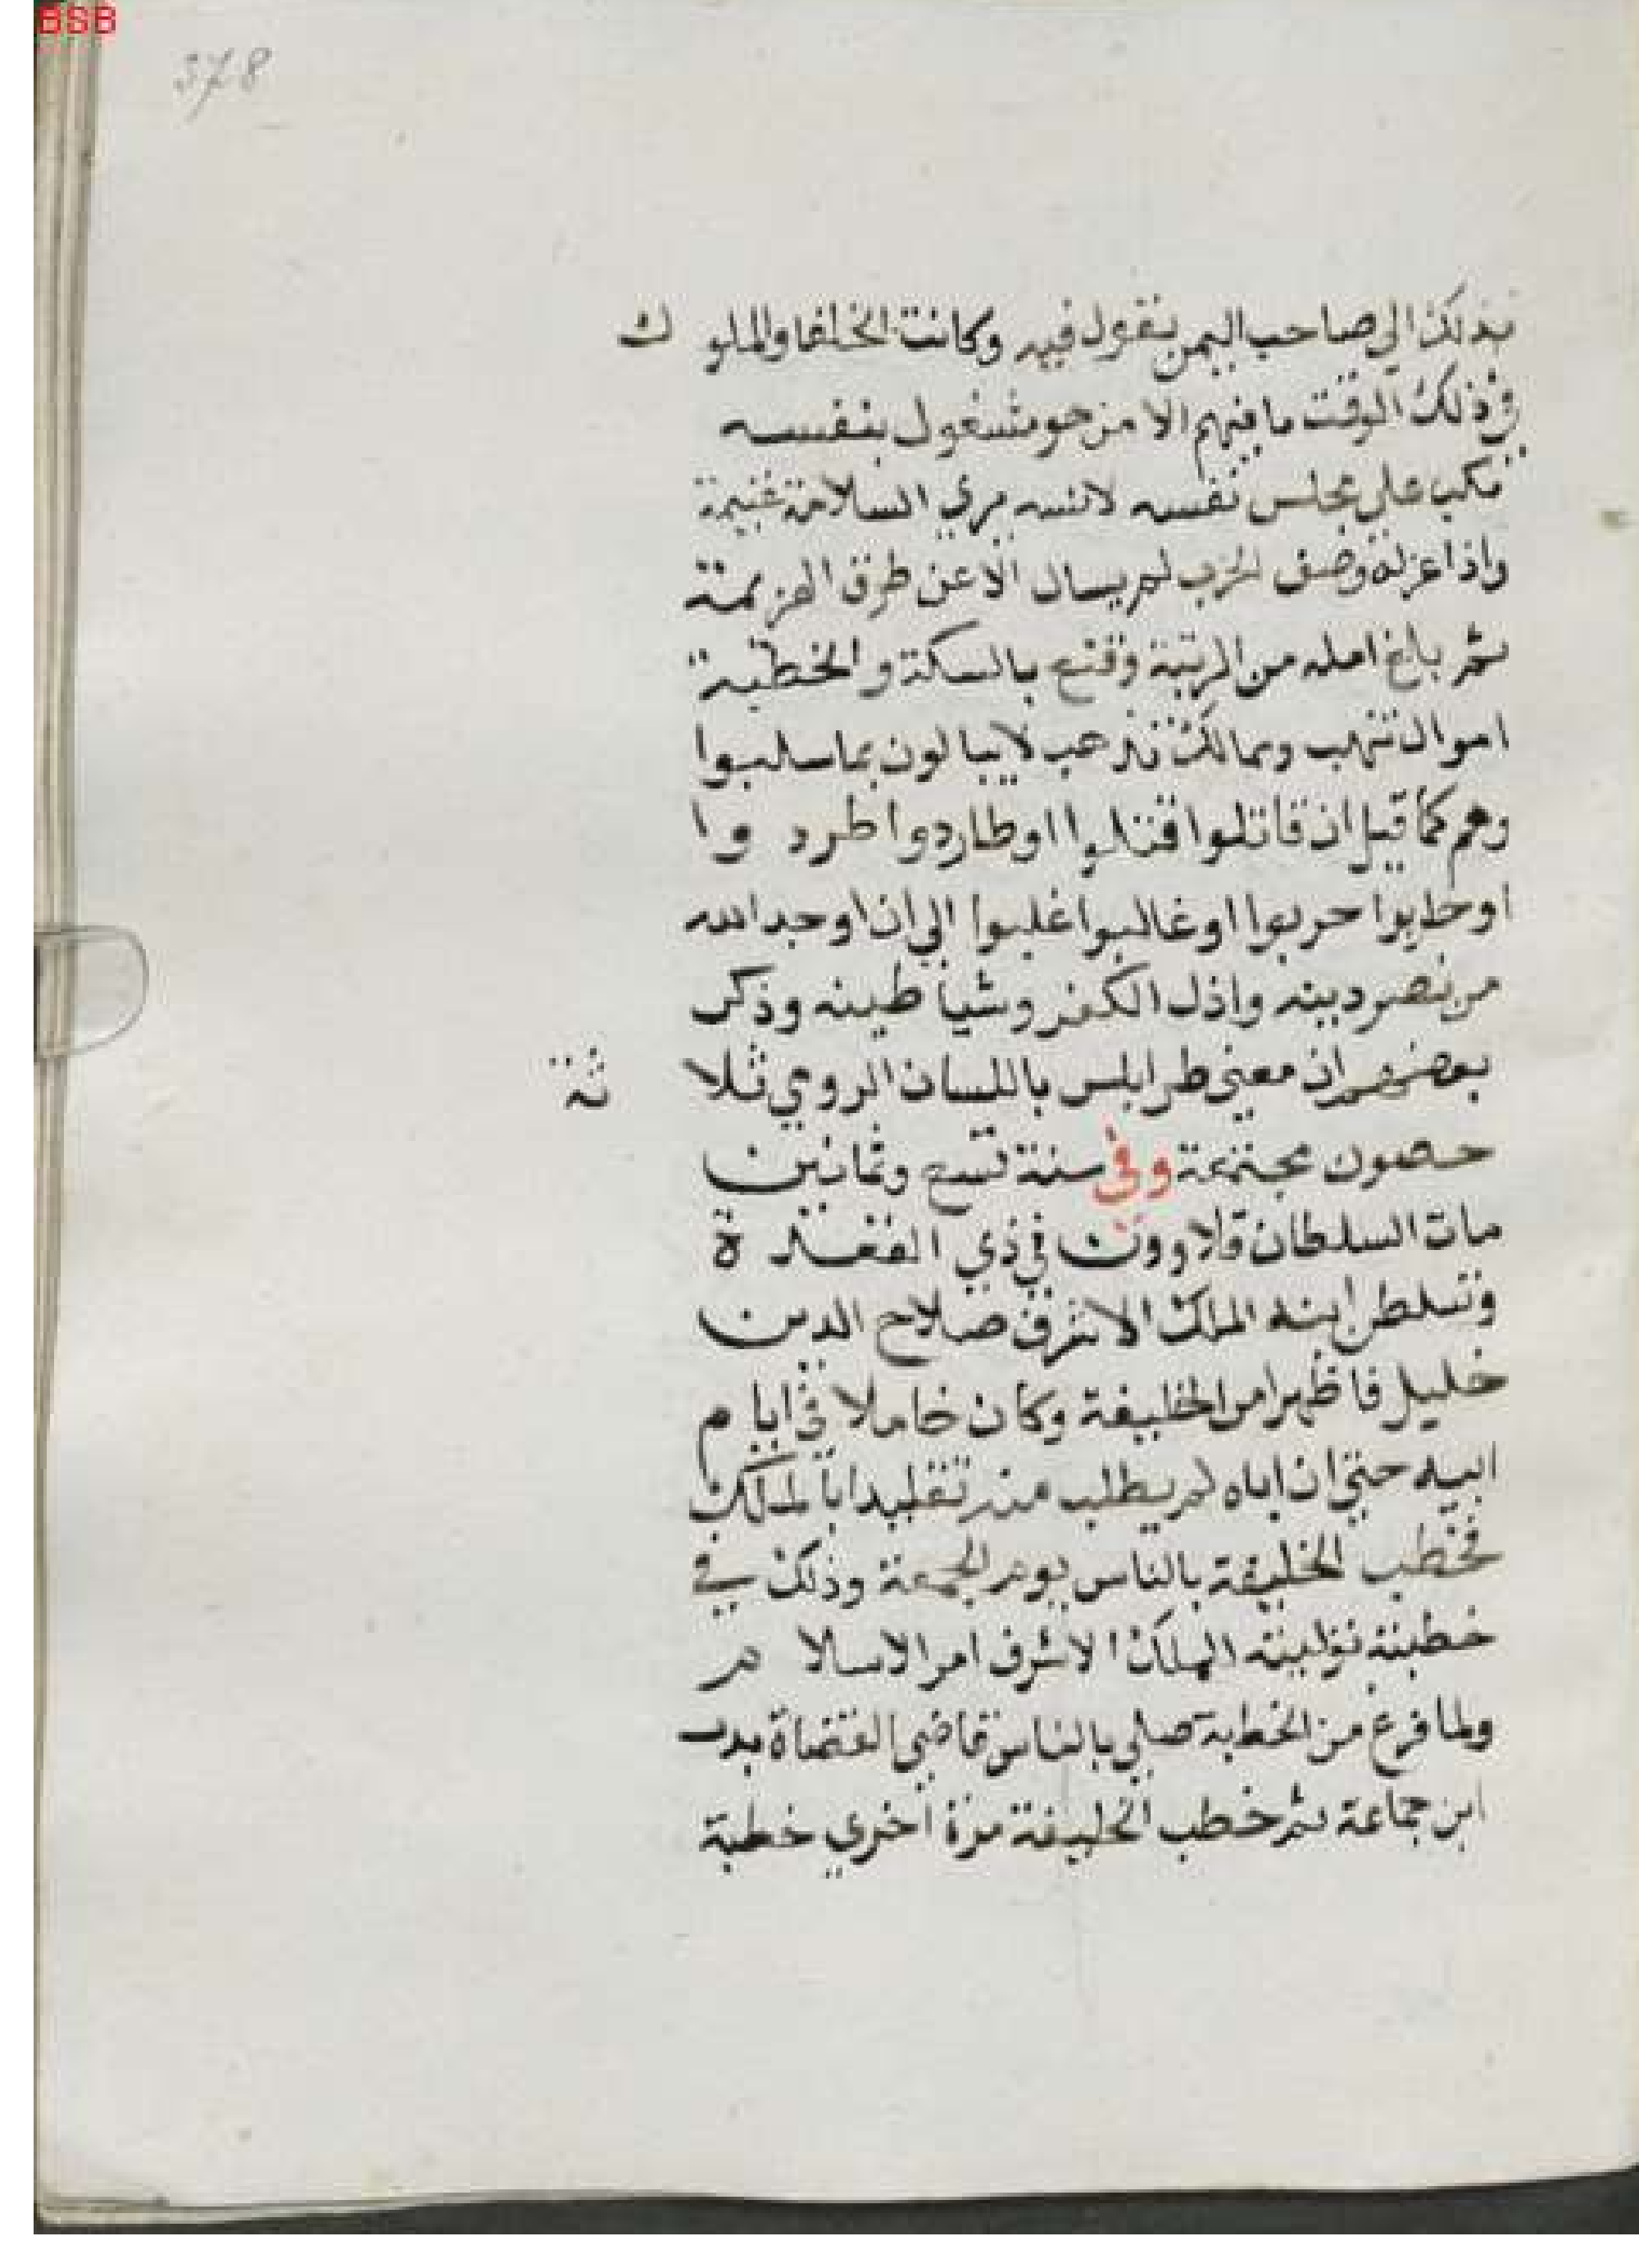 BSB
378
بذلك الي صاحب اليمن يقول فيه وكانت الخلفا والملوك
في ذلك الوقت ما فيهم الا من هو مشغول بنفسه
مكب علي مجلس نفسه لانسه يري السلامة غنيمة
واذا عزله وصف الحرب لم يسال الا عن طرق الهزيمة
ثم بلغ امله من الرتبة وقنع بالسكة والخطبة
اموال تنهب وممالك تذهب لا يبالون بما سلبوا
وهم كما قيل ان قاتلوا قتلوا او طاردوا طردوا
او حاربوا حربوا او غالبوا غلبوا الي ان اوجد الله
من نصر دينه واذل الكفر وشياطينه وذكر
بعضهم ان معني طرابلس باللسان الرومي ثلاثة
حصون مجتمعة وفي سنة تسع وثمانين
مات السلطان قلاوون في ذي القعدة
وتسلطن ابنه الملك الاشرف صلاح الدين
خليل فاظهر امر الخليفة وكان خاملا في ايام
ابيه حتي ان اباه لم يطلب منه تقليدا بالملك
فخطب الخليفة بالناس يوم الجمعة وذلك في
خطبته توليته الملك الاشرف امر الاسلام
ولما فرغ من الخطبة صلي بالناس قاضي القضاة بدر
ابن جماعة ثم خطب الخليفة مرة اخري خطبة